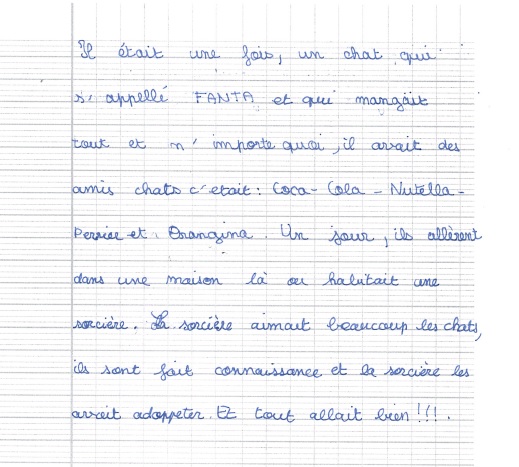 Il était une fois, un chat qui
s'appellé FANTA et qui mangait
tout et n'importe quoi, il avait des
amis chats c'etait : Coca-Cola - Nutella -
Perrier et Orangina. Un jour, ils allèrent
dans une maison là ou habitait une
sorcière. La sorcière aimait beaucoup les chats,
ils sont fait connaissance et la sorcière les
avait adoppeter. Et tout allait bien !!!.